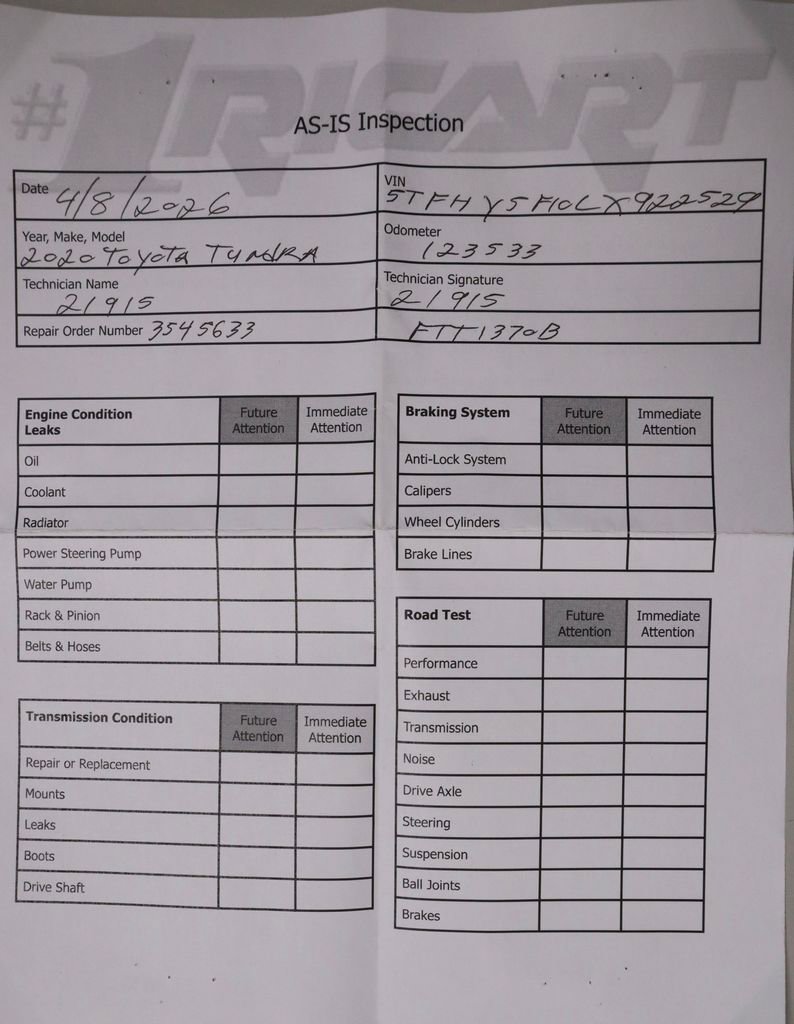 #1 RICART
AS-IS Inspection
Date 4/8/2026
VIN 5TFHY5F10LX922529
Year, Make, Model
2020 Toyota TundRA
Odometer
123533
Technician Name
21915
Technician Signature
21915
Repair Order Number 3545633
FTT1370B
Engine Condition Leaks Future Attention Immediate Attention
Oil
Coolant
Radiator
Power Steering Pump
Water Pump
Rack & Pinion
Belts & Hoses
Transmission Condition Future Attention Immediate Attention
Repair or Replacement
Mounts
Leaks
Boots
Drive Shaft
Braking System Future Attention Immediate Attention
Anti-Lock System
Calipers
Wheel Cylinders
Brake Lines
Road Test Future Attention Immediate Attention
Performance
Exhaust
Transmission
Noise
Drive Axle
Steering
Suspension
Ball Joints
Brakes